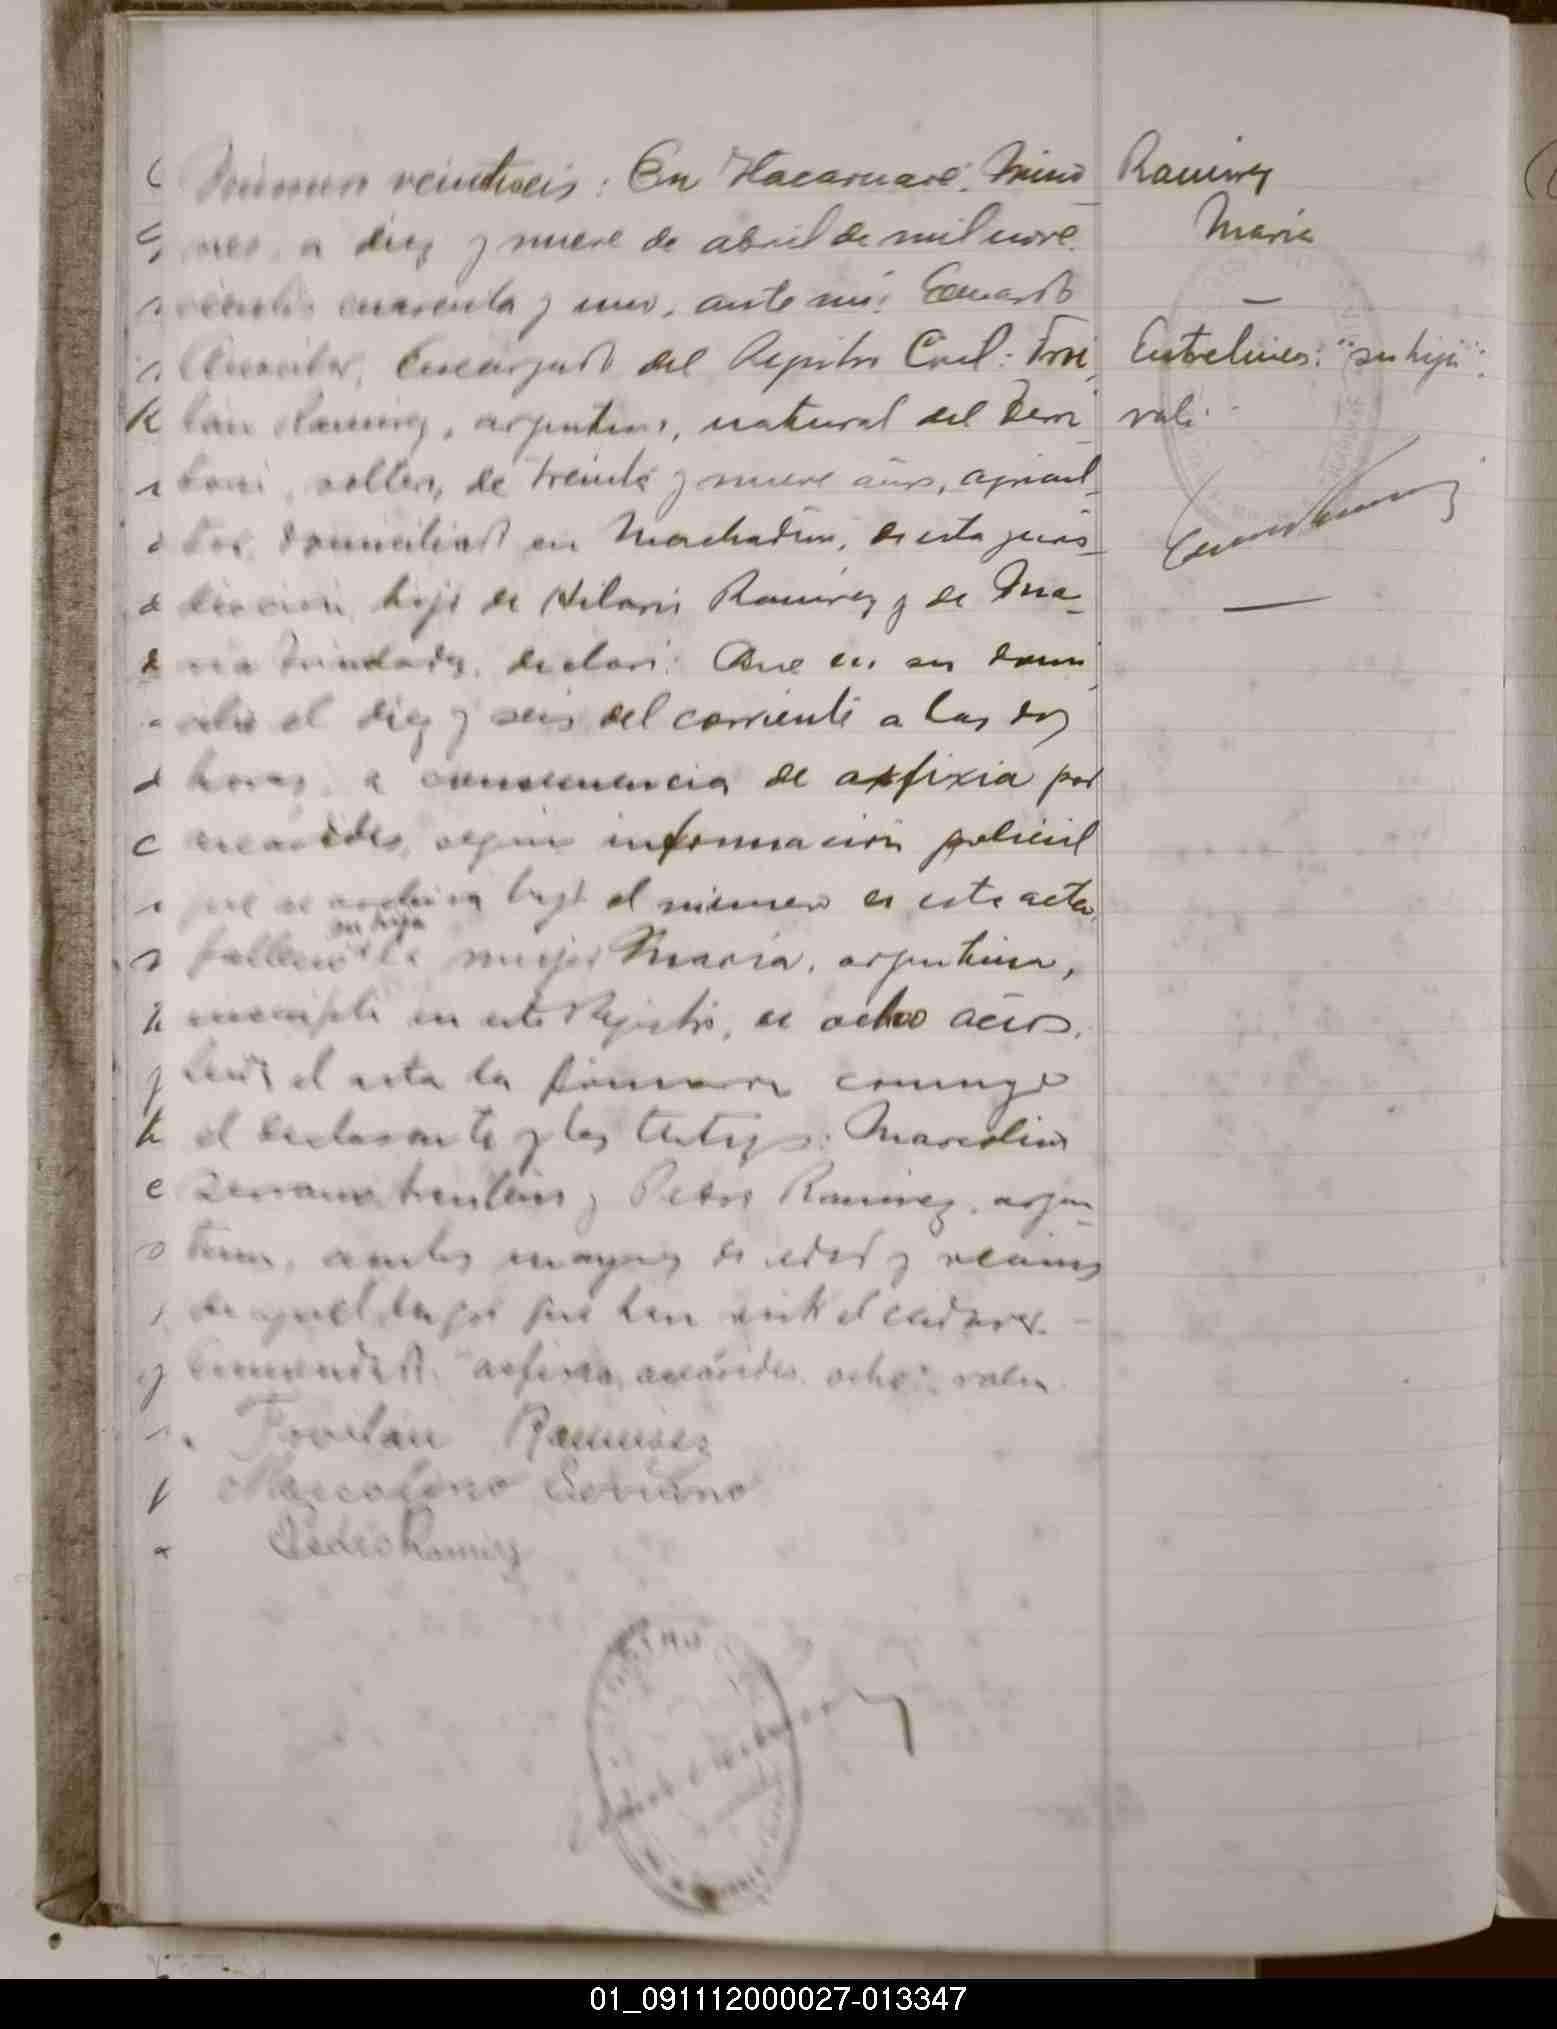 Número veintiseis: En Itacaruaré, Misio
nes, a diez y nueve de abril de mil nove
cientos cuarenta y uno, ante mí: Eduardo
Encargado del Registro Civil: Froi
lán Ramirez, argentino, natural del Terri
torio, soltero, de treinta y nueve años, agricul
tor, domiciliado en Machadiño, de esta juris
dicción, hijo de Hilario Ramirez y de Ma
ria Trindades, declaró: Que en su domi
cilio el diez y seis del corriente a las dos
horas, a consecuencia de asfixia por
ascárides, según información policial
que se archiva bajo el número de esta acta,
su hija
falleció la mujer María, argentina,
inscripta en este Registro, de ocho años.
Leída el acta la firmaron conmigo
el declarante y los testigos: Marcolino
Serrano, brasilero y Pedro Ramirez, argen
tino, ambos mayores de edad y vecinos
de aquel lugar que han visto el cadáver.
Enmendado: "asfixia, ascárides, ocho": valen.
Froilan Ramires
Marcolino Serrano
Pedro Ramirez
Ramirez
María
Entrelineas: "su hija":
vale.
01_091112000027-013347